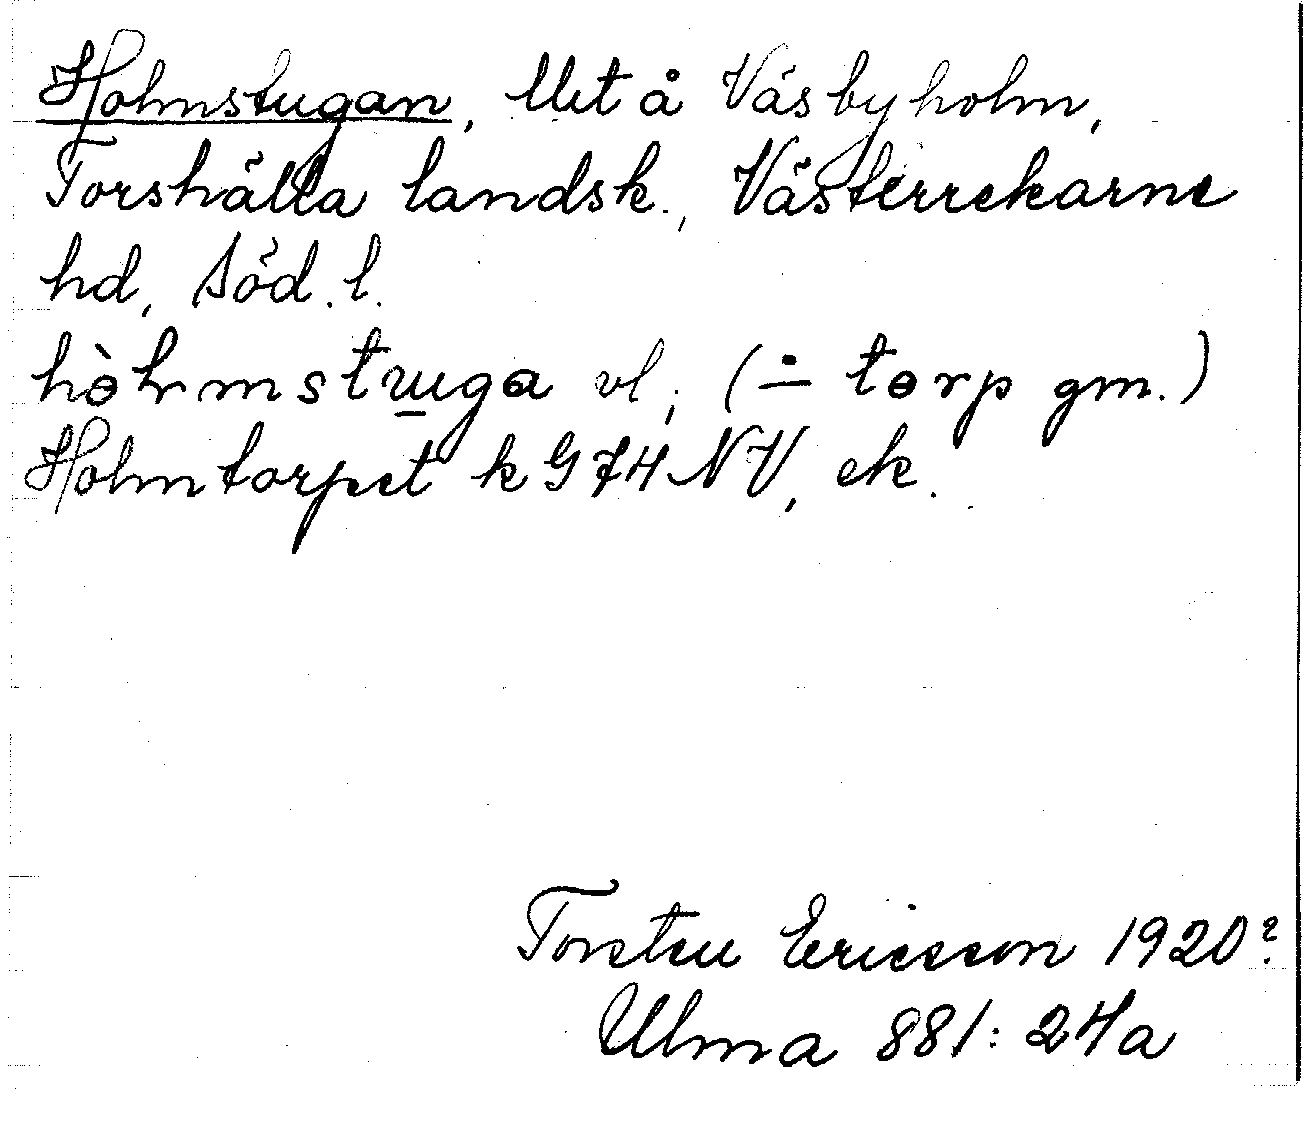 Holmstugan, Utå Väsbyholm,
Torshälla landsk., Västerrekarne
hd, Söd. l.
hòlmstuga vl; (∸ torp gm.)
Holmtorpet k G74NV, ek.
Torsten Ericsson 1920?
Ulma 881:24a